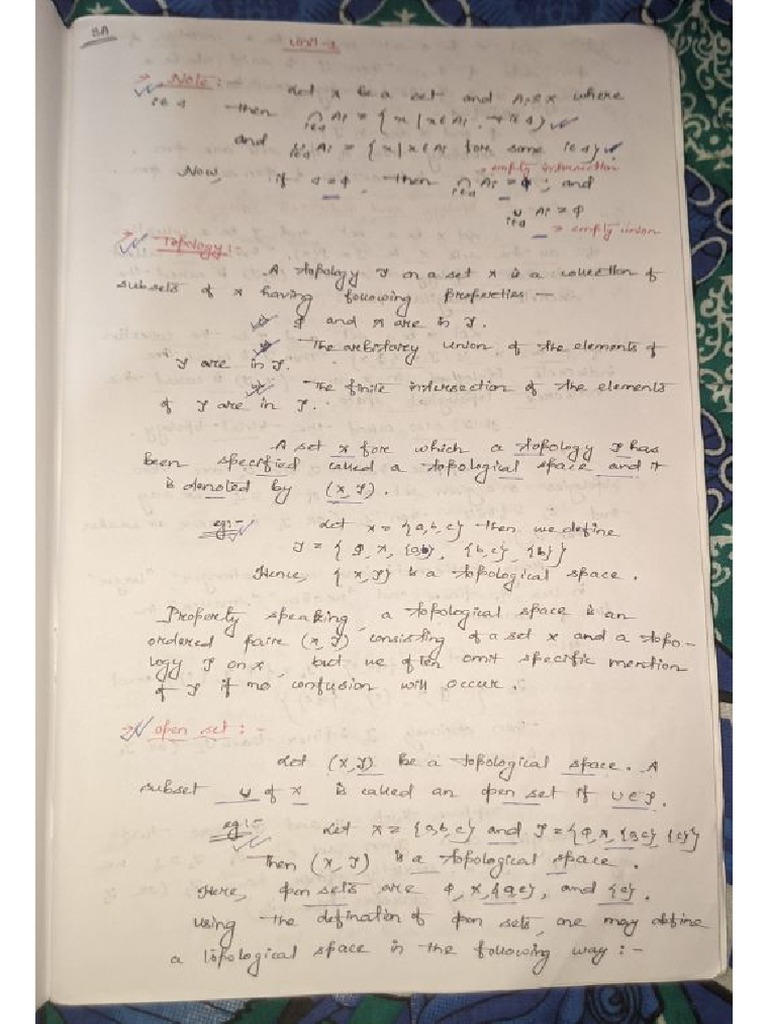 SA
Unit-1
Note:- Let X be a set and Ai ∈ X where
i∈J then ∩_{i∈J} Ai = {x | x∈Ai, ∀ i∈J}
and ∪_{i∈J} Ai = {x | x∈Ai fore some i∈J}
→ empty intersection
Now, if J=Φ, then ∩_{i∈J} Ai = Φ ; and
∪_{i∈J} Ai = Φ
→ empty union
Topology:-
A topology T on a set X is a collection of
subsets of X having following properties —
Φ and X are in T.
The arbitary union of the elements of
T are in T.
The finite intersection of the elements
of T are in T.
A set X fore which a topology T has
been specified called a topological space and it
is denoted by (X, T).
eg:- Let X = {a,b,c} then we define
T = {Φ, X, {a,b}, {b,c}, {b}}
Hence, {X,T} is a topological space.
Property speaking, a topological space is an
ordered paire (X,T) consisting of a set X and a topo-
logy T on X, but we often omit specific mention
of T if no confusion will occur.
open set:-
Let (X,T) be a topological space. A
subset U of X is called an open set if U∈T.
eg:- Let X = {a,b,c} and T = {Φ, X, {a,c}, {c}}
Then (X, T) is a topological space.
Here, open sets are Φ, X, {a,c}, and {c}.
using the defination of open sets, one may define
a topological space in the following way:-